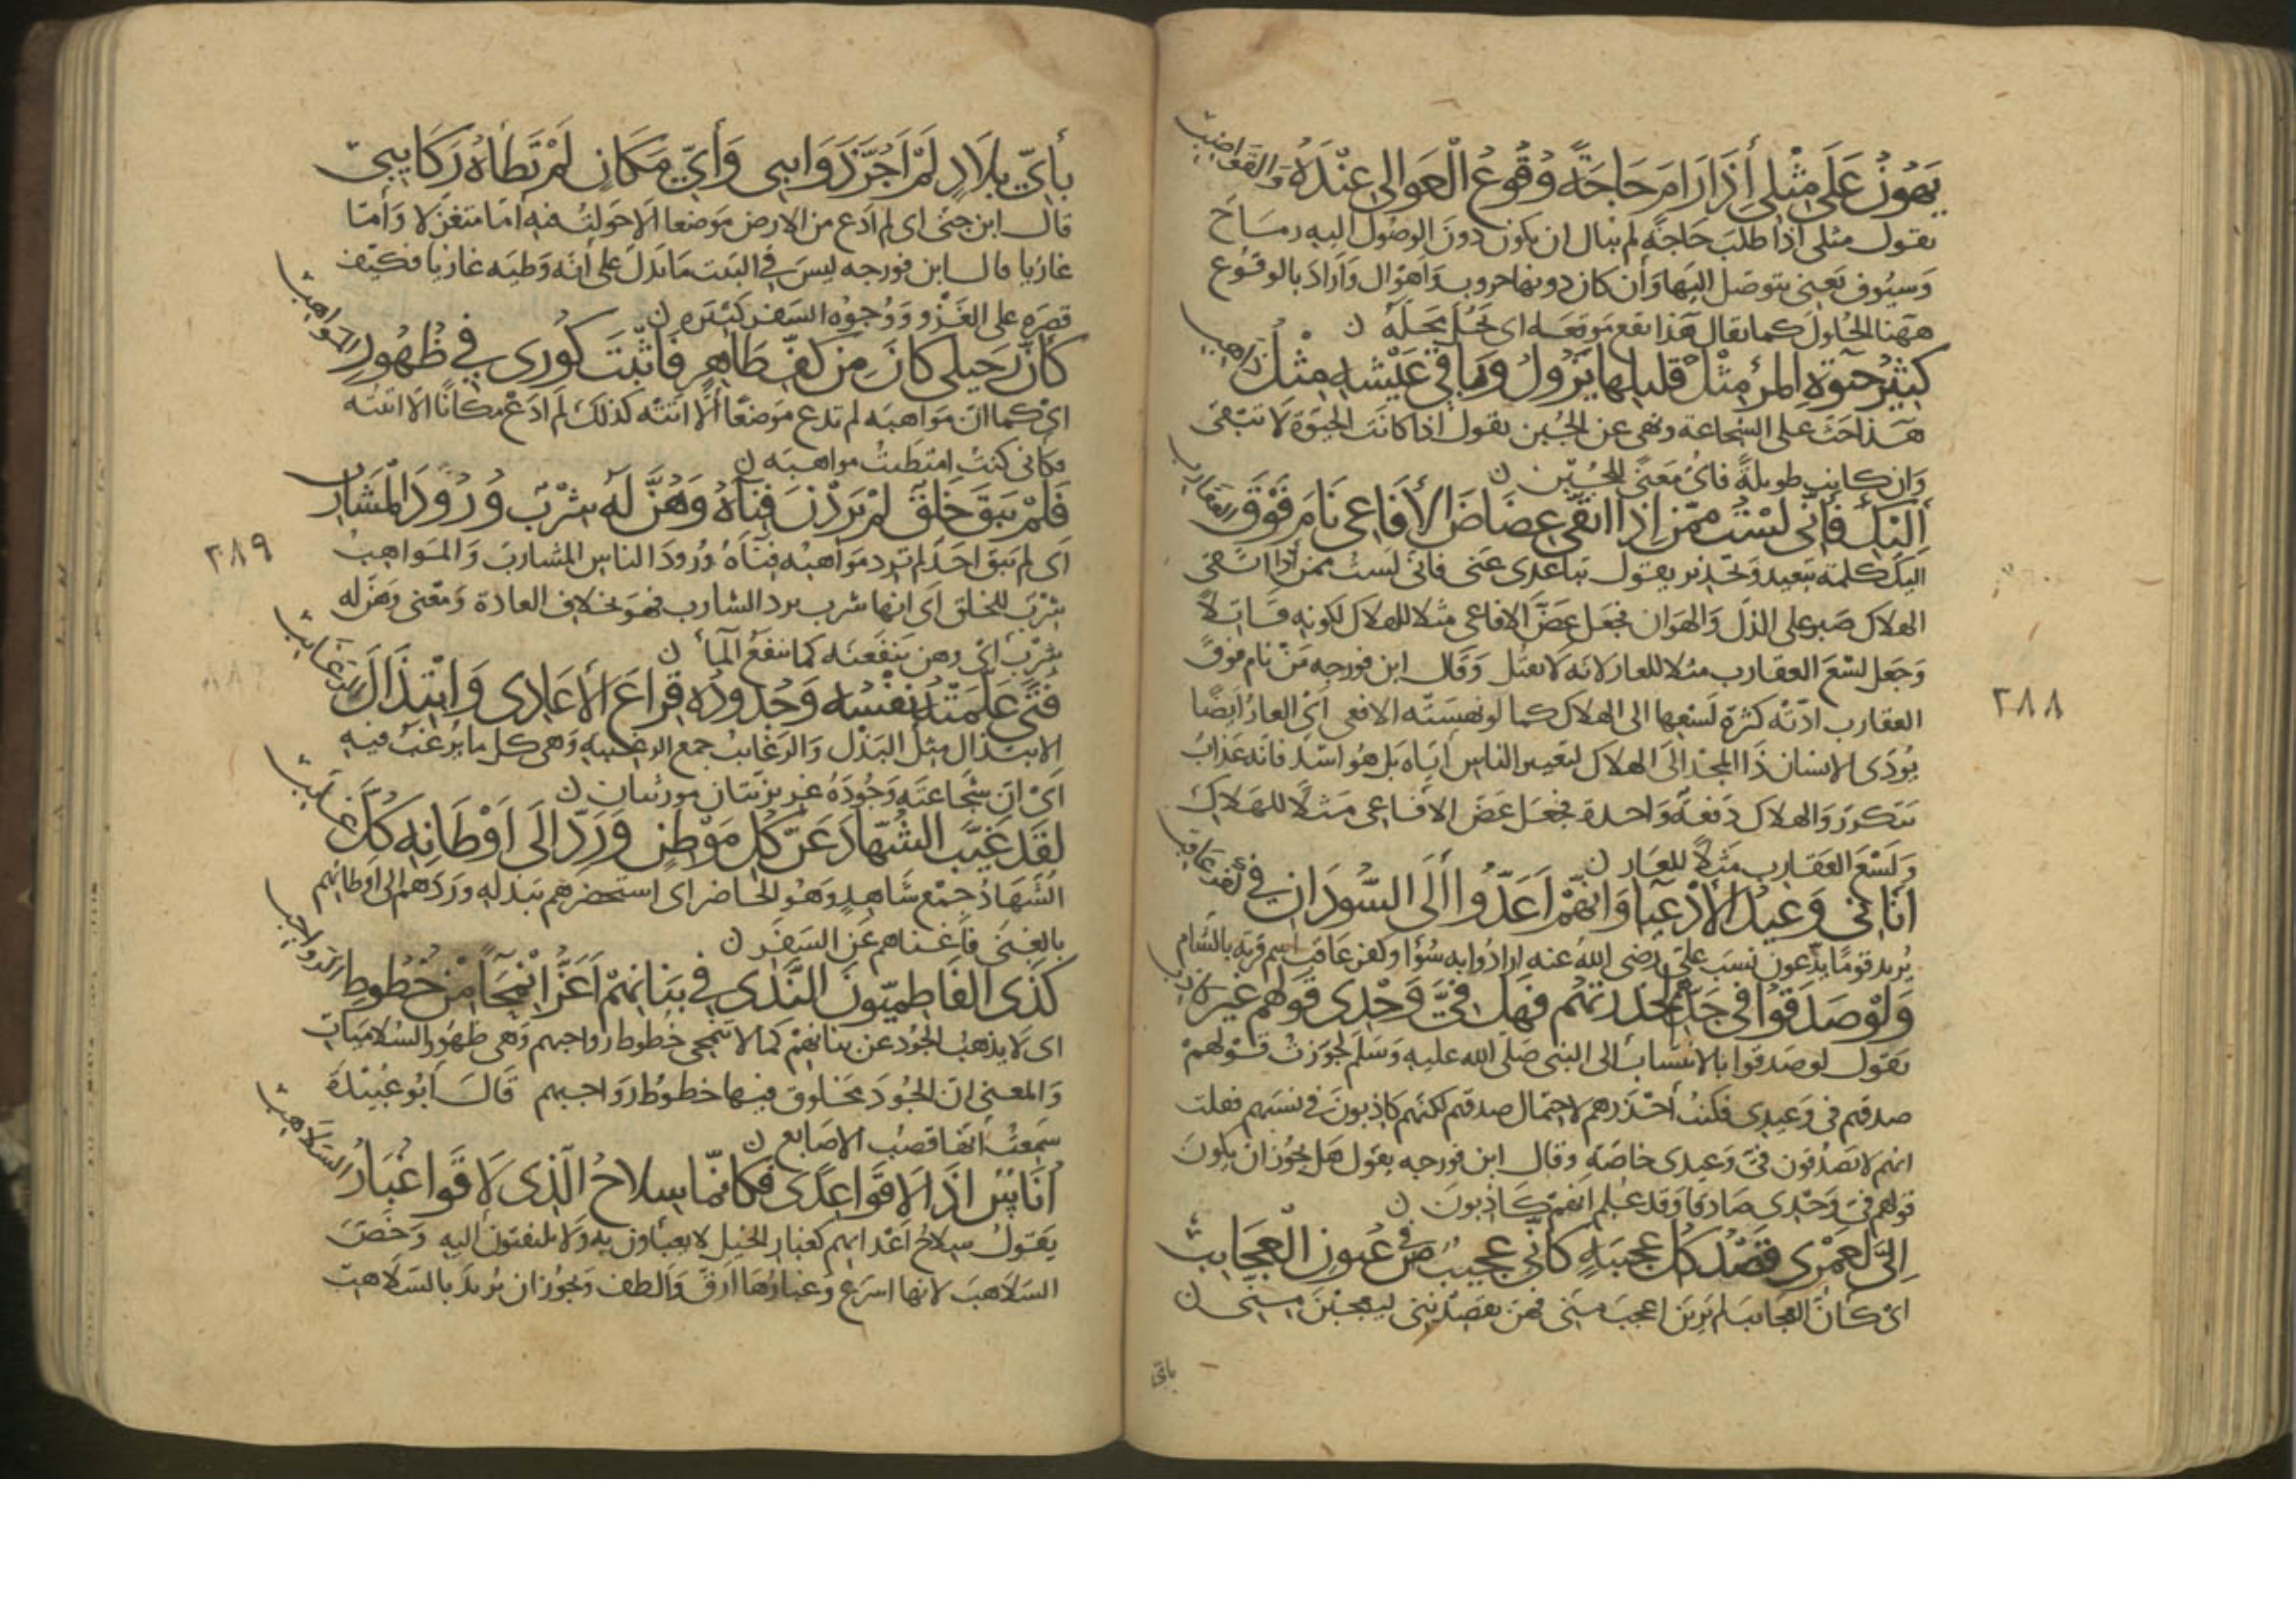 يَهُونُ عَلَى مِثْلِي إِذَا رَامَ حَاجَةً وُقُوعُ الْعَوَالِي عِنْدَهُ وَالقَوَاضِبِ
يقول مثلى اذا طلب حاجة لم يبال ان يكون دون الوصول اليه رماح
وسيوف يعنى يتوصل اليها وان كان دونها حروب واهوال واراد بالوقوع
ههنا الحلول كما يقال هذا يقع موقعه اى يحل محله ن
كَثِيرُ حَيٰوةِ الْمَرْءِ مِثْلُ قَلِيلِهَا يَزُولُ وَبَاقِي عَيْشِهِ مِثْلُ ذَاهِبِ
هذا حث على الشجاعة ونهى عن الجبن يقول اذا كانت الحيوة لا تبقى
وان كانت طويلة فاى معنى للجبن ن
إِلَيْكِ فَإِنِّي لَسْتُ مِمَّنْ إِذَا اتَّقَى عِضَاضَ الأَفَاعِي نَامَ فَوْقَ العَقَارِبِ
اليك كلمة تبعيد وتحذير يقول تباعدى عنى فانى لست ممن اذا اتقى
الهلاك صبر على الذل والهوان فجعل عض الافاعى مثلا للهلاك لكونه قاتلا
وجعل لسع العقارب مثلا للعار لانه لا يقتل وقال ابن فورجه من نام فوق
العقارب ادته كثرة لسعها الى الهلاك كما لو نهسته الافعى اى العار ايضا
يؤدى الانسان ذا المجد الى الهلاك لتعيير الناس اياه بل هو اشد فانه عذاب
يتكرر والهلاك دفعة واحدة فجعل عض الافاعى مثلا للهلاك
ولسع العقارب مثلا للعار ن
أَتَانِي وَعِيدُ الأَدْعِيَاءِ وَأَنَّهُمْ أَعَدُّوا الَى السُّودَانَ فِي كَفْرِ عَاقِبِ
يريد قوما يدعون نسب على رضى الله عنه ارادوا به سوءا وكفر عاقب اسم قرية بالشام
وَلَوْ صَدَقُوا فِي جَدِّهِمْ لَحَذِرْتُهُمْ فَهَلْ فِيَّ وَحْدِي قَوْلُهُمْ غَيْرُ كَاذِبِ
يقول لو صدقوا بالانتساب الى النبى صلى الله عليه وسلم لجوزت قولهم
صدقهم فى وعيدى فكنت احذرهم لاحتمال صدقهم لكنهم كاذبون فى نسبهم فعلت
انهم لا يصدقون فى وعيدى خاصة وقال ابن فورجه يقول هل يجوز ان يكون
قولهم فى وحدى صادقا وقد علم انهم كاذبون ن
إِلَيَّ لَعَمْرِي قَصْدُ كُلِّ عَجِيبَةٍ كَأَنِّي عَجِيبٌ فِي عُيُونِ الْعَجَائِبِ
اى كان العجائب لم يرين اعجب منى فهن يقصدننى ليعجبن منى ن
باى
٢٨٨
بِأَيِّ بِلَادٍ لَمْ أَجُرَّ ذَوَائِبِي وَأَيُّ مَكَانٍ لَمْ تَطَأْهُ رَكَائِبِي
قال ابن جنى اى لم ادع من الارض موضعا الا حولت فيه اما متغزلا واما
غازيا قال ابن فورجه ليس فى البيت ما يدل على انه وطئه غازيا فكيف
قصره على الغزو ووجوه السفر كثيره ن
كَأَنَّ رَحِيلِي كَانَ مِنْ كَفِّ طَاهِرٍ فَأَثْبَتَ كُورِي فِي ظُهُورِ المَوَاهِبِ
اى كما ان مواهبه لم تدع موضعا الا اتته كذلك لم ادع مكانا الا اتيته
فكانى كنت امتطيت مواهبه ن
فَلَمْ يَبْقَ خَلْقٌ لَمْ يَرِدْنَ فِنَاءَهُ وَهُنَّ لَهُ شِرْبٌ وُرُودَ الْمَشَارِبِ
اى لم يبق احد لم ترد مواهبه فناءه ورود الناس المشارب والمواهب
شرب للخلق اى انها شرب يرد الشارب فهو بخلاف العادة ومعنى وهن له
شرب اى وهن ينفعنه كما ينفع الماء ن
٢٨٩
فَتًى عَلَّمَتْهُ نَفْسُهُ وَجُدُودُهُ قِرَاعَ الأَعَادِي وَابْتِذَالَ الرَّغَائِبِ
الابتذال مثل البذل والرغائب جمع الرغيبه وهى كل ما يرغب فيه
اى ان شجاعته وجوده غريزتان موروثتان ن
لَقَدْ غَيَّبَ الشُّهَّادَ عَنْ كُلِّ مَوْطِنٍ وَرَدَّ الَى أَوْطَانِهِ كُلَّ غَائِبِ
الشهاد جمع شاهد وهو الحاضر اى استحضرهم ببذله وردهم الى اوطانهم
بالغنى فاغناهم عن السفر ن
كَذَى الفَاطِمِيُّونَ النَّدَى فِي بَنَانِهِمْ أَعَزُّ انْمِحَاءً مِنْ خُطُوطِ الرَّوَاجِبِ
اى لا يذهب الجود عن بنانهم كما لا تنمحى خطوط رواجبهم وهى ظهور السلاميات
والمعنى ان الجود مخلوق فيها خطوط رواجبهم قال ابو عبيدة
سمعت انها قصب الاصابع ن
أُنَاسٌ إِذَا لَاقَوْا عِدًى فَكَأَنَّمَا سِلَاحُ الَّذِي لَاقَوْا غُبَارُ السَّلَاهِبِ
يقول سلاح اعدائهم كغبار الخيل لا يعبأون به ولا يلتفتون اليه وخص
السلاهب لانها اسرع وغبارها ارق والطف ويجوز ان يريد بالسلاهب